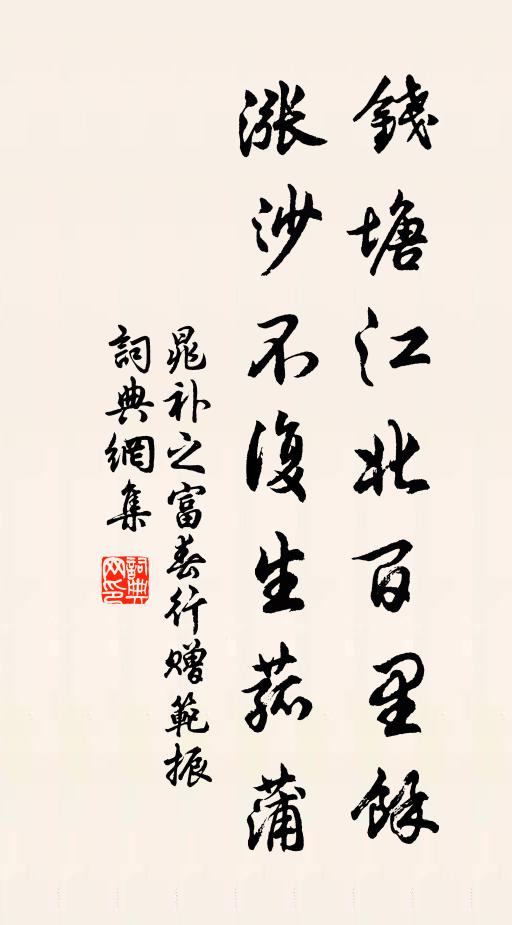 錢塘江北百里餘
漲沙不復生菰蒲
晁补之富春行赠範振
詞典網集
詞典网印